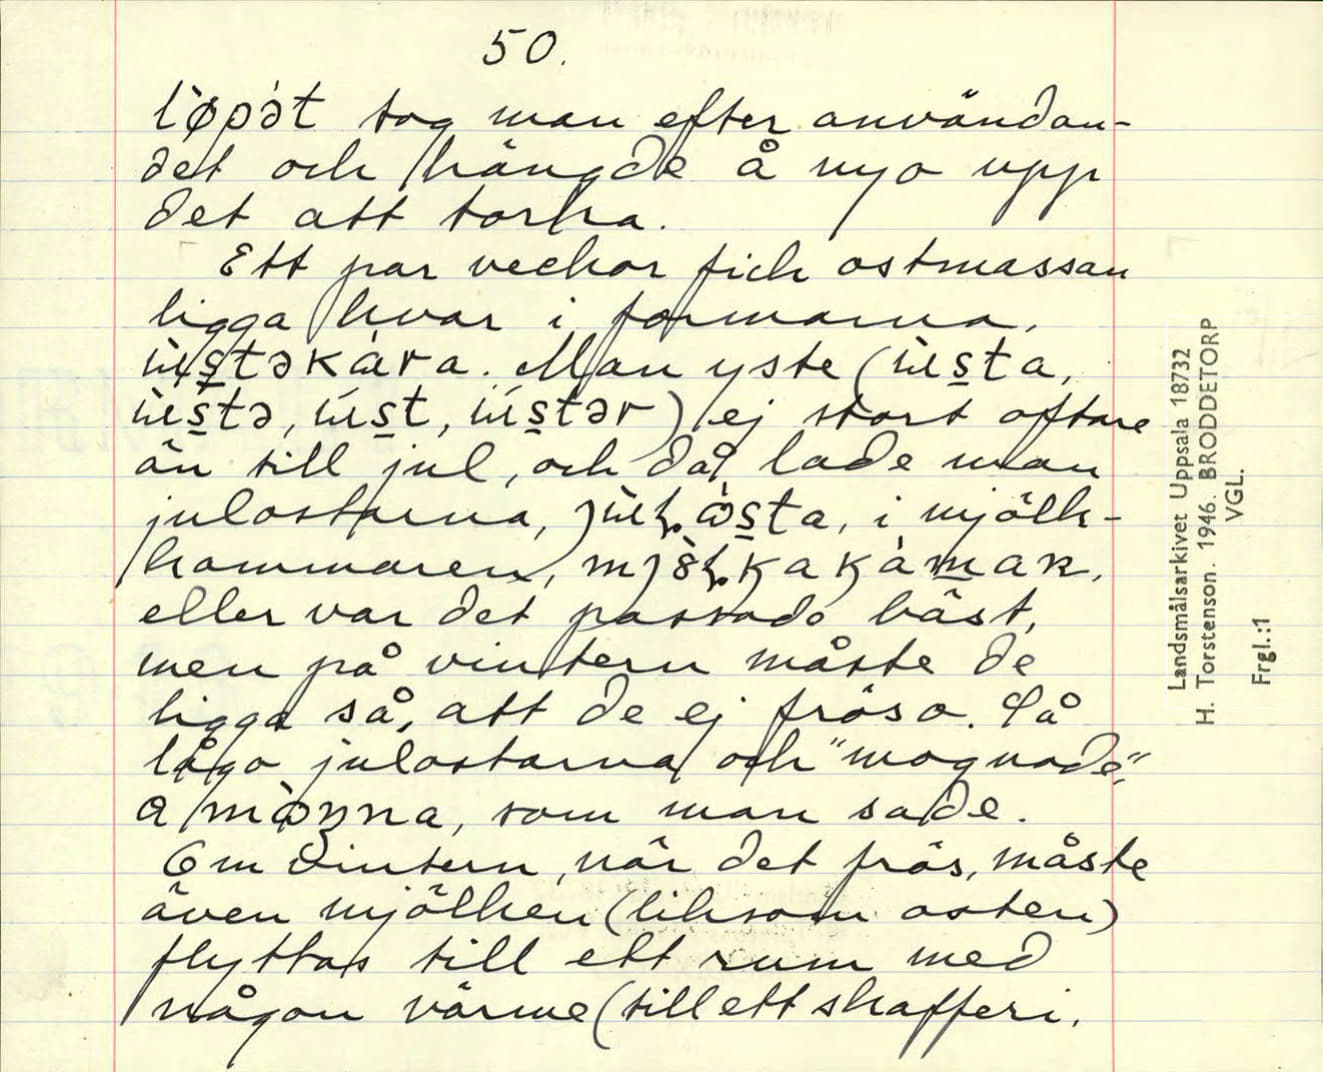 50.
lø̀pə̀t tog man efter användan-
det och hängde å nyo upp
det att torka.
Ett par veckor fick ostmassan
ligga kvar i formarna,
ùs̠təkàra. Man yste (ùs̠ta,
ùs̠tə, ús̠t, ús̠tər) ej stort oftare
än till jul, och då lade man
julostarna, i mjölk-
kammaren,
eller var det passade bäst,
men på vintern måste de
ligga så, att de ej fröso. Så
lågo julostarna och "mognade",
a som man sade.
Om vintern, när det frös, måste
även mjölken (liksom osten)
flyttas till ett rum med
någon värme (till ett skafferi,
Landsmålsarkivet Uppsala 18732
H. Torstenson. 1946. BRODDETORP
VGL.
Frgl.:1